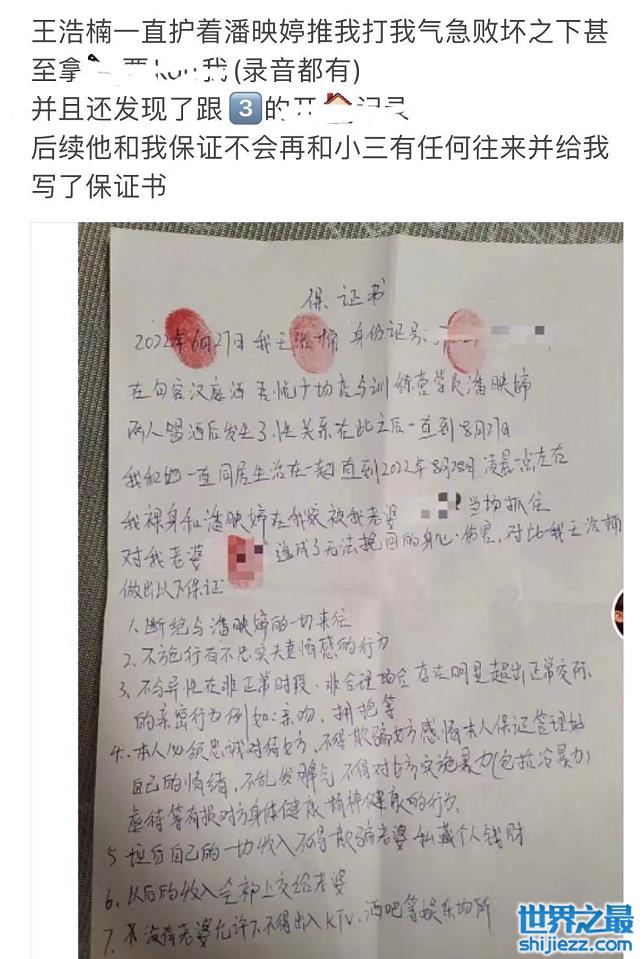 王浩楠一直护着潘映婷推我打我气急败坏之下甚
至拿 我(录音都有)
并且还发现了跟3的开🏠记录
后续他和我保证不会再和小三有任何往来并给我
写了保证书
保证书
2022年6月27日我王浩楠 身份证号:
在句容汉庭酒 吾悦广场店与训练营学员潘映婷
两人喝酒后发生了性关系在此之后一直到8月27日
我们她一直同居生活在一起直到2022年8月28日凌晨一点左右
我裸身和潘映婷在我家被我老婆 当场抓住
对我老婆 造成了无法挽回的身心伤害,对此我王浩楠
做出以下保证
1.断绝与潘映婷的一切来往
2.不施行有不忠实夫妻情感的行为
3.不与异性在非正常时段、非合理场合存在明显超出正常交际
的亲密行为例如:亲吻、拥抱等
4.本人必须忠诚对待对方,不得欺骗对方感情本人保证管理好
自己的情绪,不乱发脾气不得对对方实施暴力(包括冷暴力)
虐待等有损对方身体健康精神健康的行为.
5.坦白自己的一切收入不得欺骗老婆私藏个人钱财
6.以后的收入全部上交给老婆
7. 没有老婆允许下不得出入KTV、酒吧等娱乐场所
世界之最
shijiezz.com